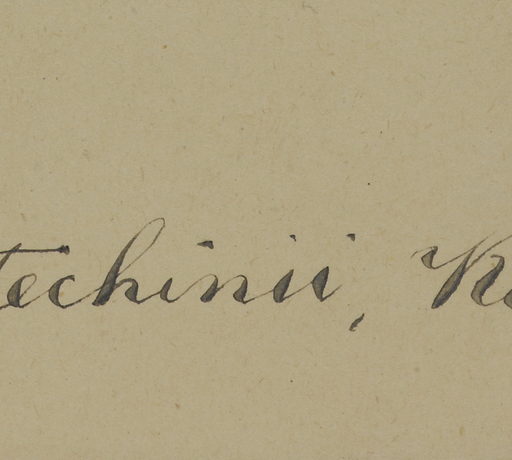 techinii, K